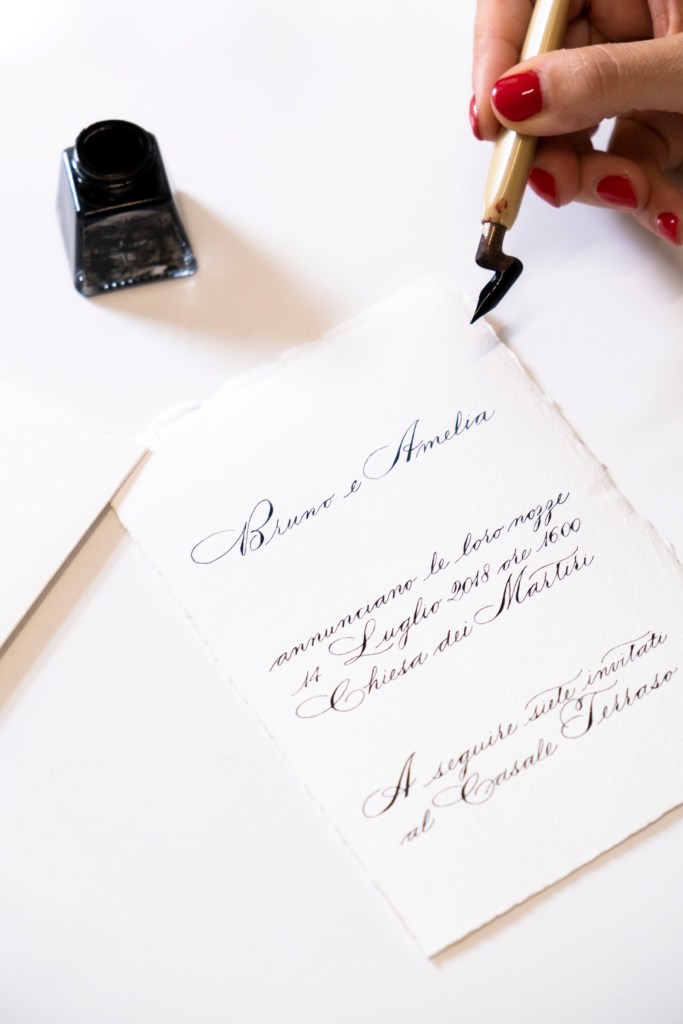 Bruno e Amelia
annunciano le loro nozze
14 Luglio 2018 ore 16.00
Chiesa dei Martiri
A seguire siete invitati
al Casale Terraso